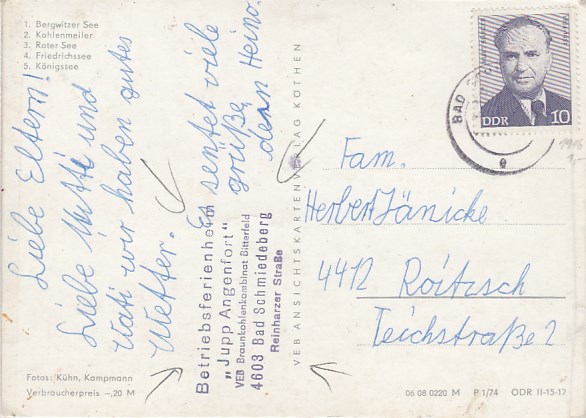 1. Bergwitzer See
2. Kohlenmeiler
3. Roter See
4. Friedrichssee
5. Königssee
Liebe Eltern!
Liebe Mutti und
Vati wir haben gutes
Wetter.
Es sentet viele
grüße
denn Heino.
Betriebsferienheim
"Jupp Angenfort"
VEB Braunkohlenkombinat Bitterfeld
4603 Bad Schmiedeberg
Reinharzer Straße
VEB ANSICHTSKARTENVERLAG KÖTHEN
DDR 10
BAD
e
Fam.
Herbert Jänicke
4412 Roitzsch
Teichstraße 2
Fotos: Kühn, Kampmann
Verbraucherpreis –,20 M
06 08 0220 M P 1/74 ODR II-15-17